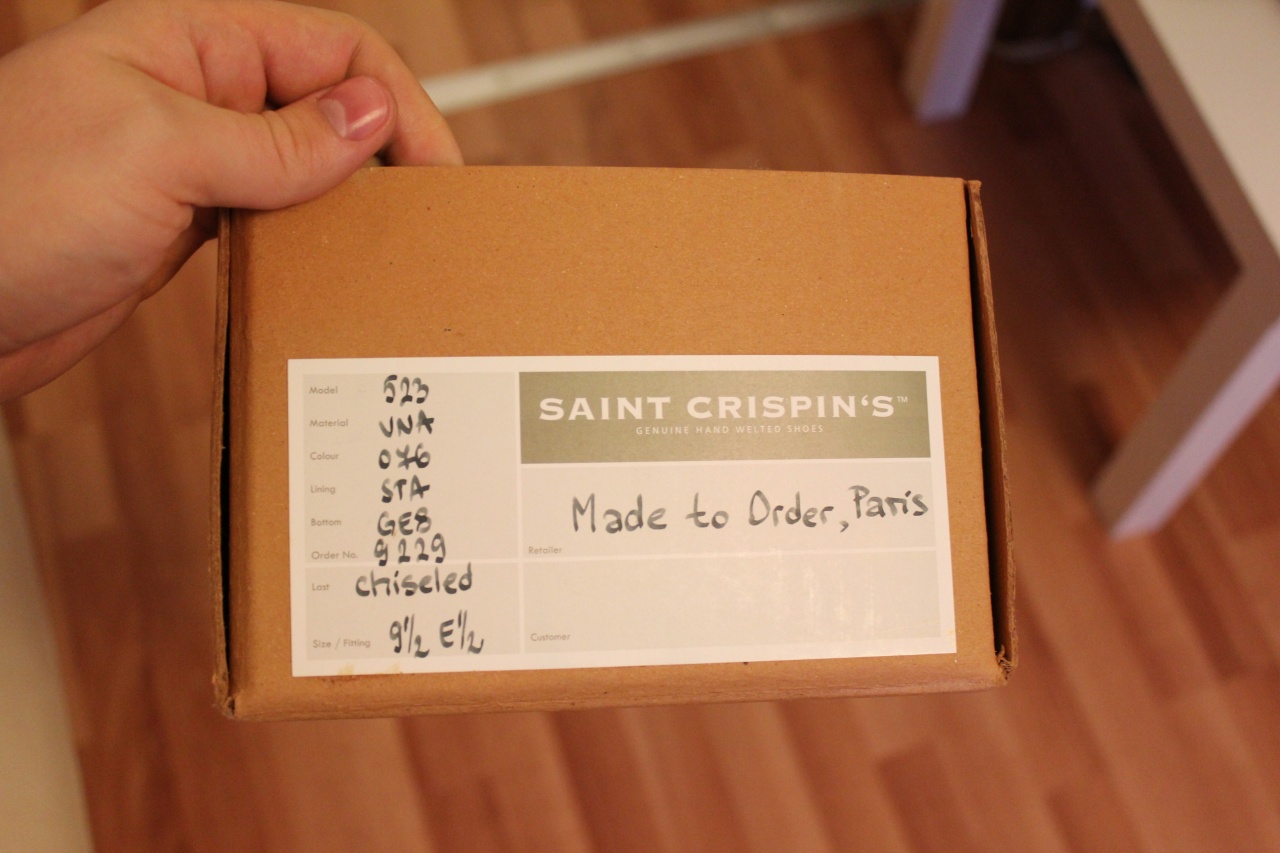 Model 523
Material VNA
Colour 076
Lining STA
Bottom GE8
Order No. 9229
Last chiseled
Size / Fitting 9½ E½
SAINT CRISPIN‘S™
GENUINE HAND WELTED SHOES
Made to Order, Paris
Retailer
Customer